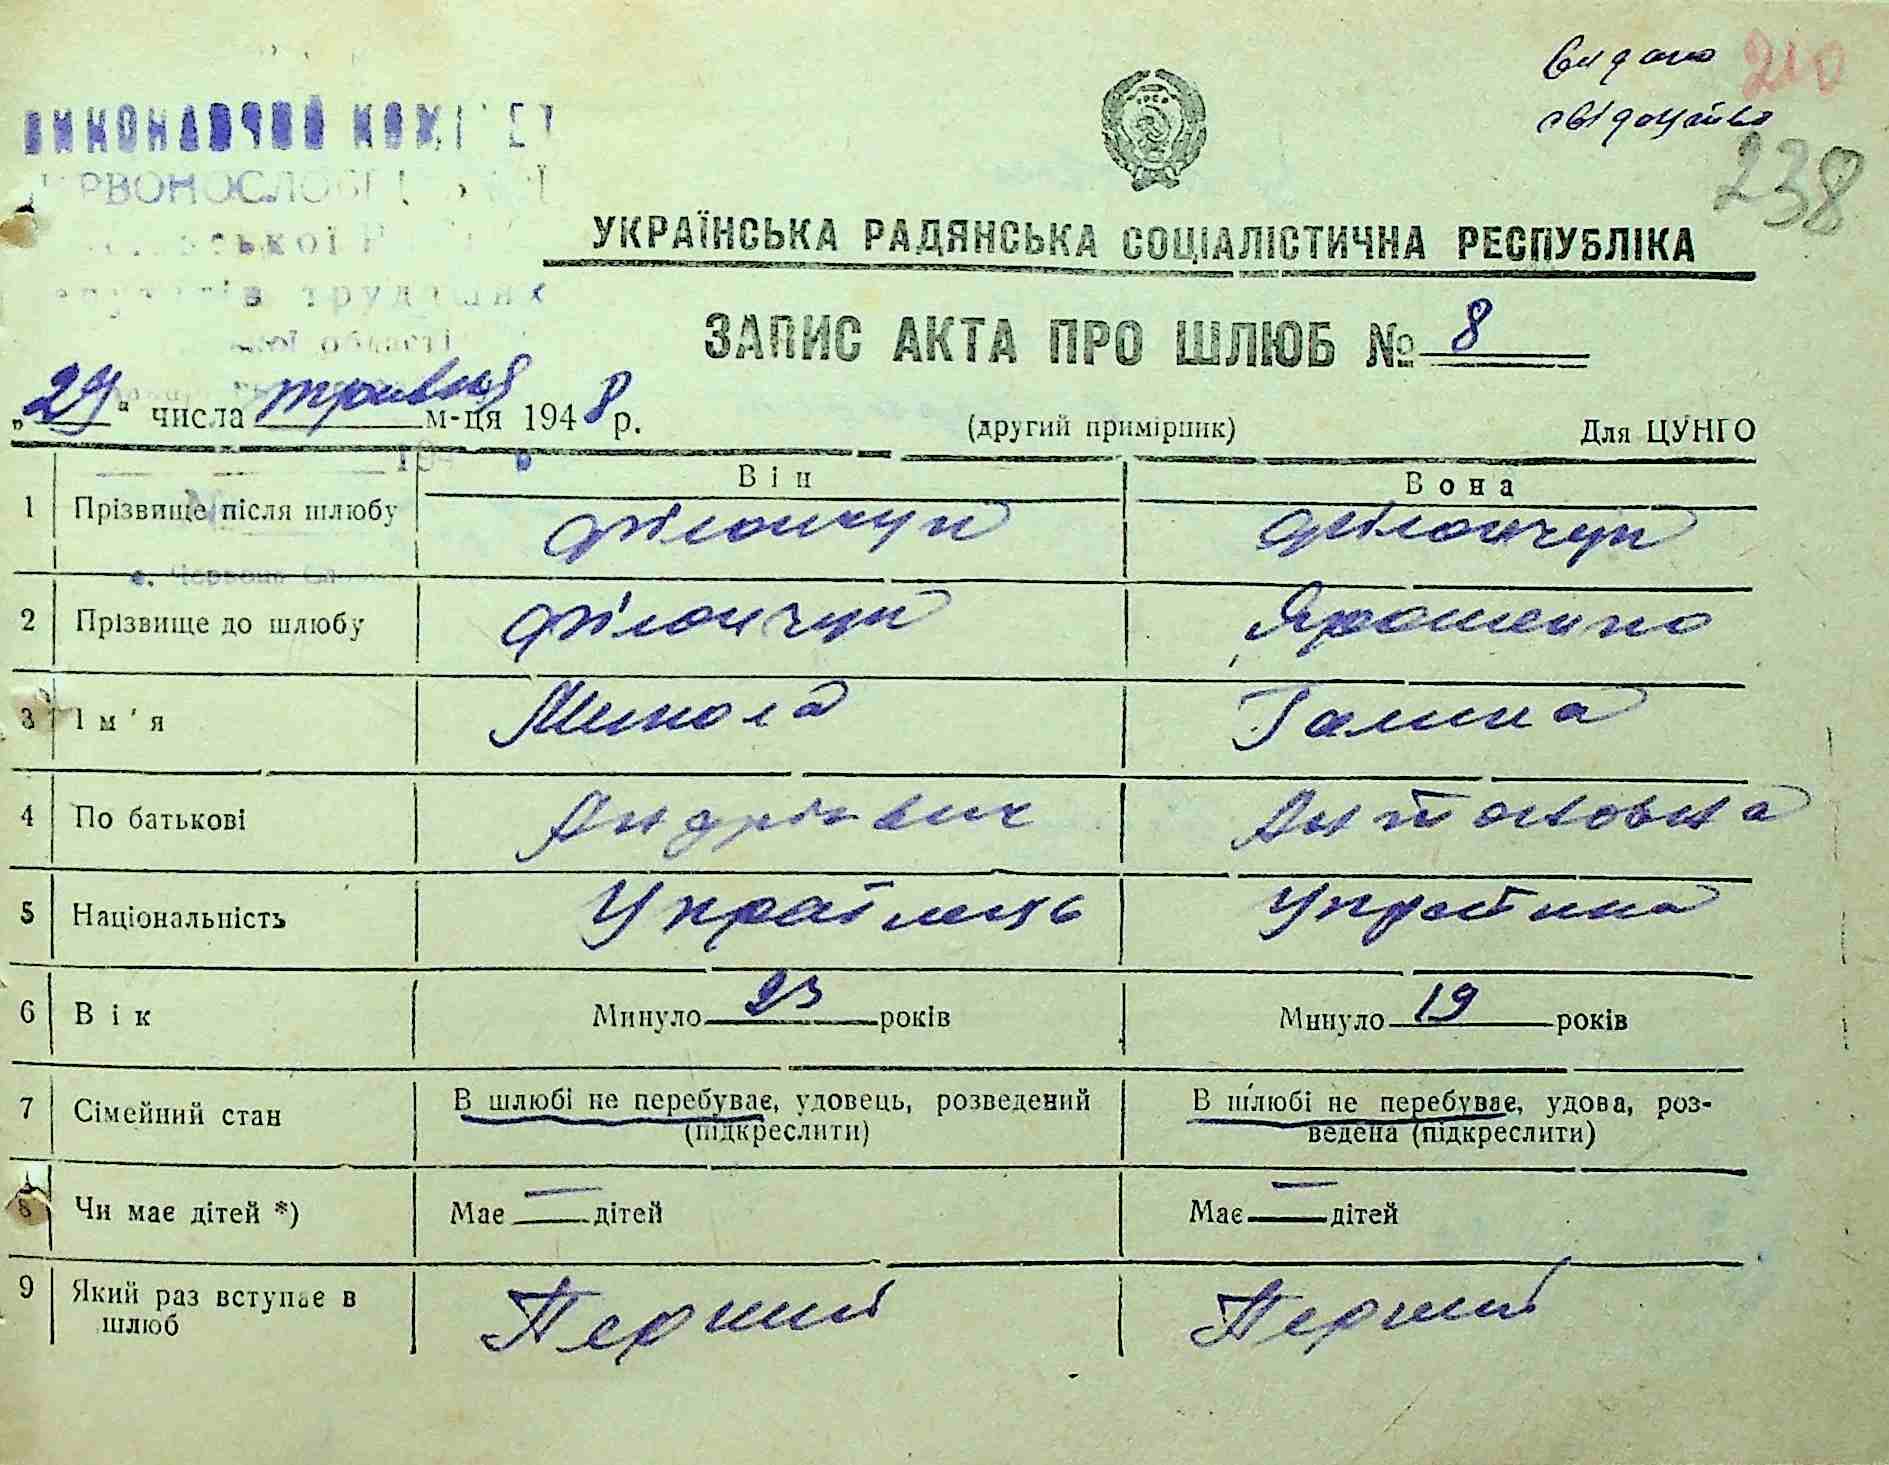 Видано 210
свідоцтво
238
ВИКОНАВЧИЙ КОМІТЕТ
УКРАЇНСЬКА РАДЯНСЬКА СОЦІАЛІСТИЧНА РЕСПУБЛІКА
трудящих
області
ЗАПИС АКТА ПРО ШЛЮБ № 8
„29“ числа травня м-ця 1948 р.
(другий примірник) Для ЦУНГО
Він Вона
1 Прізвище після шлюбу Філончук Філончук
с. Червона
2 Прізвище до шлюбу Філончук Ярошенко
3 Ім'я Микола Галина
4 По батькові Андрієвич Антоновна
5 Національність Українець Українка
6 Вік Минуло 23 років Минуло 19 років
7 Сімейний стан В шлюбі не перебуває, удовець, розведений (підкреслити) В шлюбі не перебуває, удова, роз-
ведена (підкреслити)
8 Чи має дітей *) Має — дітей Має — дітей
9 Який раз вступає в шлюб Перший Перший